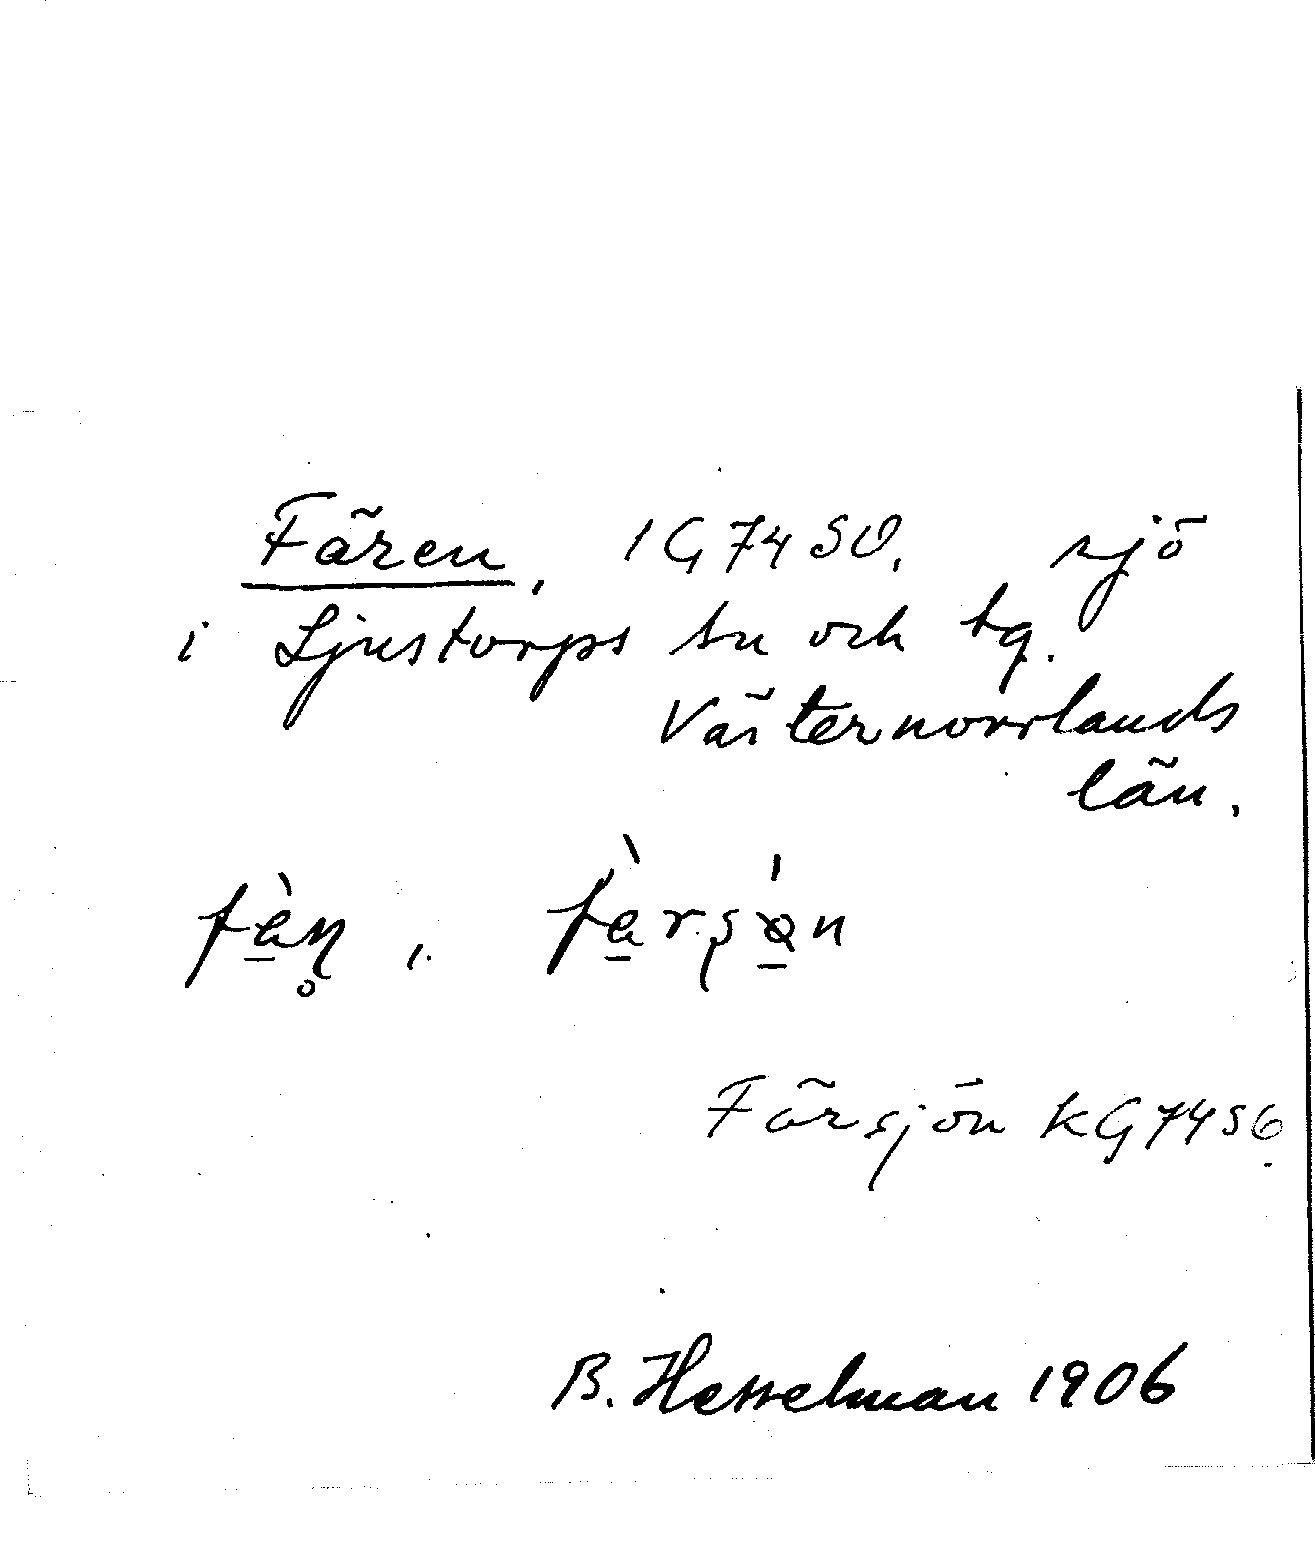 Fären, IG 74 SO. sjö
i Ljustorps sn och tg.
Västernorrlands
län.
Färsjön KG 74 S6
B. Hesselman 1906